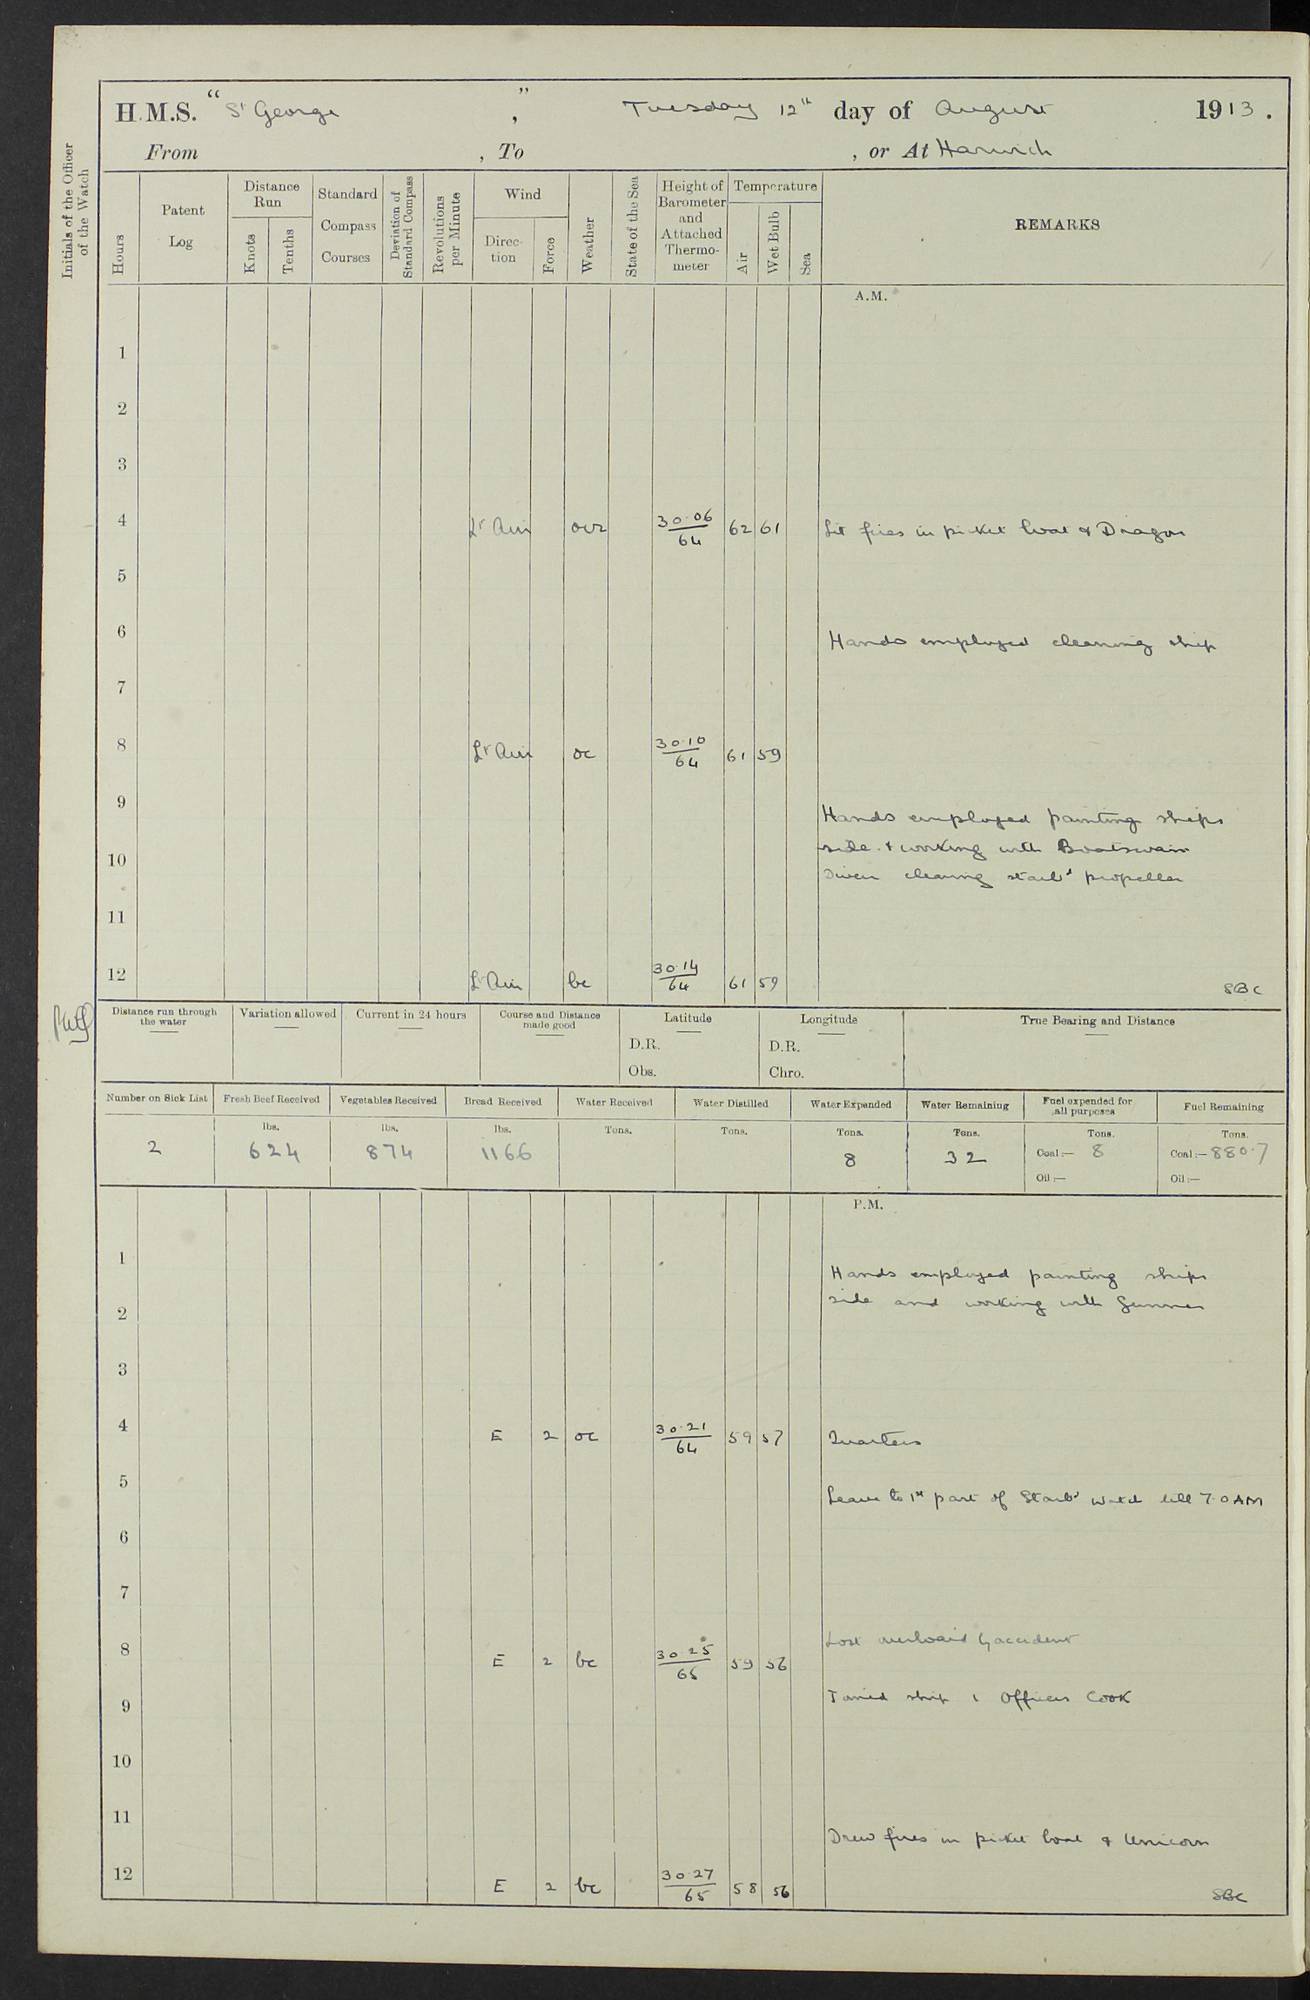 H.M.S. "St George", Tuesday 12th day of August 1913.
From , To , or At Harwich
Initials of the Officer of the Watch
Hours
Patent Log
Distance Run
Knots
Tenths
Standard Compass Courses
Deviation of Standard Compass
Revolutions per Minute
Wind
Direction
Force
Weather
State of the Sea
Height of Barometer and Attached Thermometer
Temperature
Air
Wet Bulb
Sea
REMARKS
A.M.
1
2
3
4 Lt Air 30.06/64 62 61 Lit fires in picket boat & Dragon
5
6 Hands employed cleaning ship
7
8 Lt Air oc 30.10/64 61 59
9 Hands employed painting ships
side & working with Boatswain
10 Diver clearing starbd propeller
11
12 Lt Air bc 30.14/64 61 59
SBC
Distance run through the water
Variation allowed
Current in 24 hours
Course and Distance made good
Latitude
D.R.
Obs.
Longitude
D.R.
Chro.
True Bearing and Distance
Number on Sick List
Fresh Beef Received
Vegetables Received
Bread Received
Water Received
Water Distilled
Water Expended
Water Remaining
Fuel expended for all purposes
Fuel Remaining
lbs. lbs. lbs. Tons. Tons. Tons. Tons. Tons. Tons.
2 624 874 1166 8 32 Coal:— 8 Coal:— 880.7
Oil:— Oil:—
P.M.
1 Hands employed painting ships
2 side and working with Gunner
3
4 E 2 oc 30.21/64 59 57 Quarters
5 Leave to 1st part of Starbd watch till 7.0 AM
6
7
8 E 2 bc 30.25/65 59 56 Lost overboard by accident
9 Joined ship 1 Officers Cook
10
11 Drew fires in picket boat & Unicorn
12 E 2 bc 30.27/65 58 56
SBC